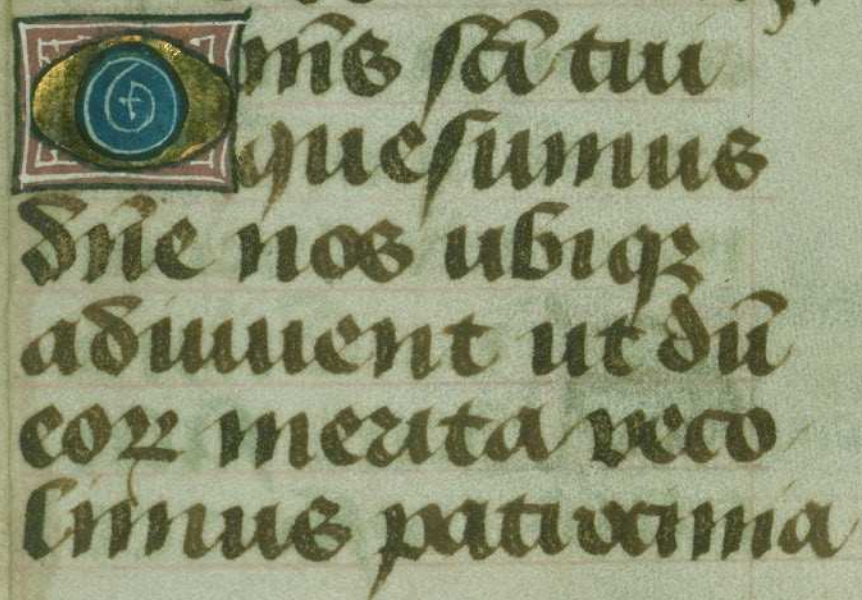 Om̄s sc̄i tui
quesumus
dn̄e nos ubiqꝫ
adiuuent ut dū
eoꝝ merita reco
limus patrocinia